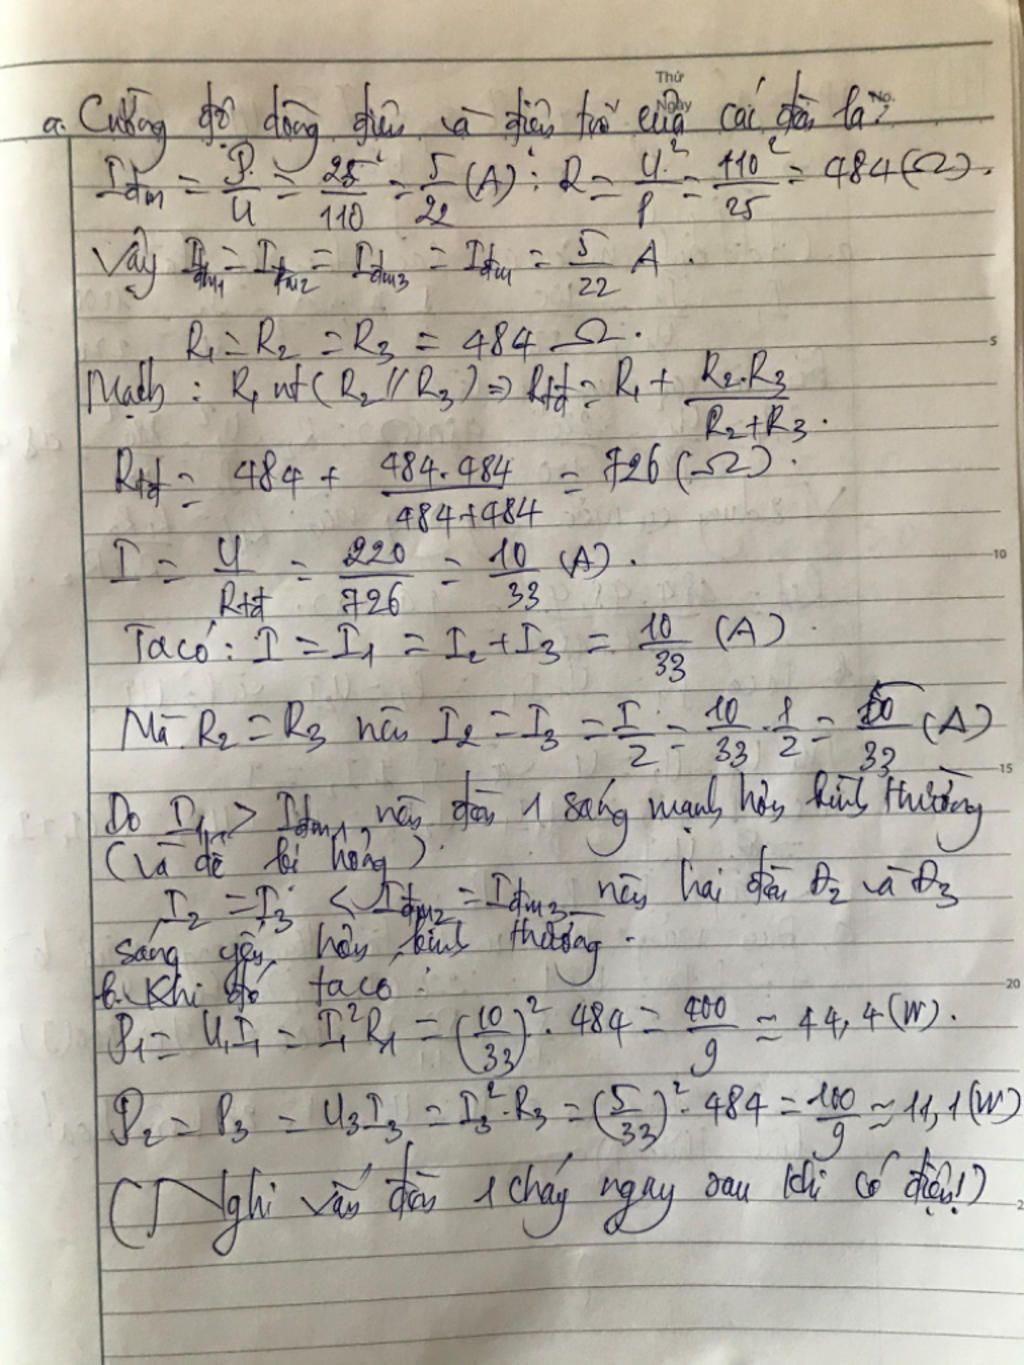 Thứ
Ngày
No.
a. Cường độ dòng điện và điện trở của các đèn là:
Iđm = P/U = 25/110 = 5/22 (A) ; R = U²/P = 110²/25 = 484 (Ω).
Vậy Iđm1 = Iđm2 = Iđm3 = Iđm = 5/22 A.
R1 = R2 = R3 = 484 Ω.
5
Mạch : R1 nt (R2 // R3) => Rtđ = R1 + R2.R3/R2+R3.
Rtđ = 484 + 484.484/484+484 = 726 (Ω).
I = U/Rtđ = 220/726 = 10/33 (A).
10
Ta có : I = I1 = I2 + I3 = 10/33 (A)
Mà R2 = R3 nên I2 = I3 = I/2 = 10/33 . 1/2 = 5/33 (A)
15
Do I1 > Iđm1 nên đèn 1 sáng mạnh hơn bình thường
(và dễ bị hỏng).
I2 = I3 < Iđm2 = Iđm3 nên hai đèn Đ2 và Đ3
sáng yếu hơn bình thường.
b. Khi đó ta có :
20
P1 = U1I1 = I1²R1 = (10/33)² . 484 = 400/9 ≃ 44,4 (W).
P2 = P3 = U3I3 = I3².R3 = (5/33)² . 484 = 100/9 ≃ 11,1 (W)
(Nghi vấn đèn 1 cháy ngay sau khi có điện!)